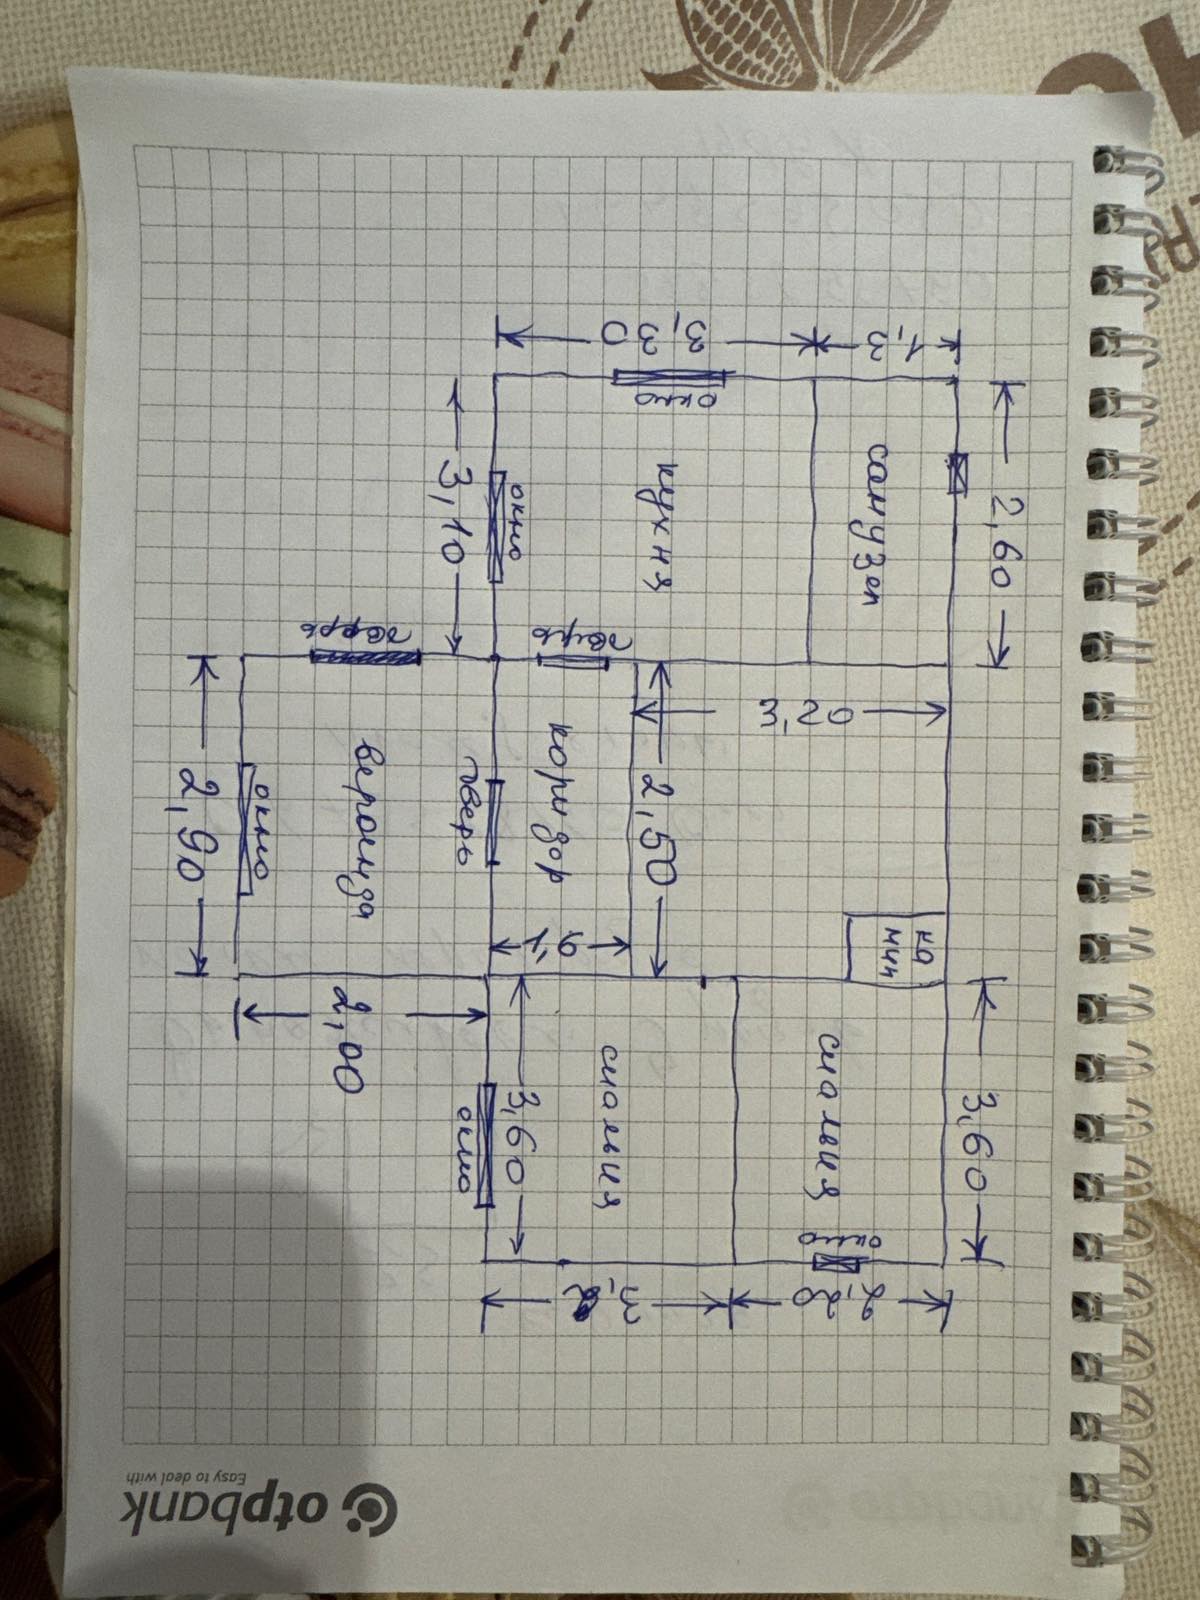 2,60
1,3
3,30
санузел
окно
кухня
окно
3,10
3,20
дверь
дверь
2,50
коридор
дверь
веранда
окно
2,90
ка
мин
1,9
2,00
3,60
3,60
спальня
спальня
окно
окно
2,20
3,2
otpbank
Easy to deal with